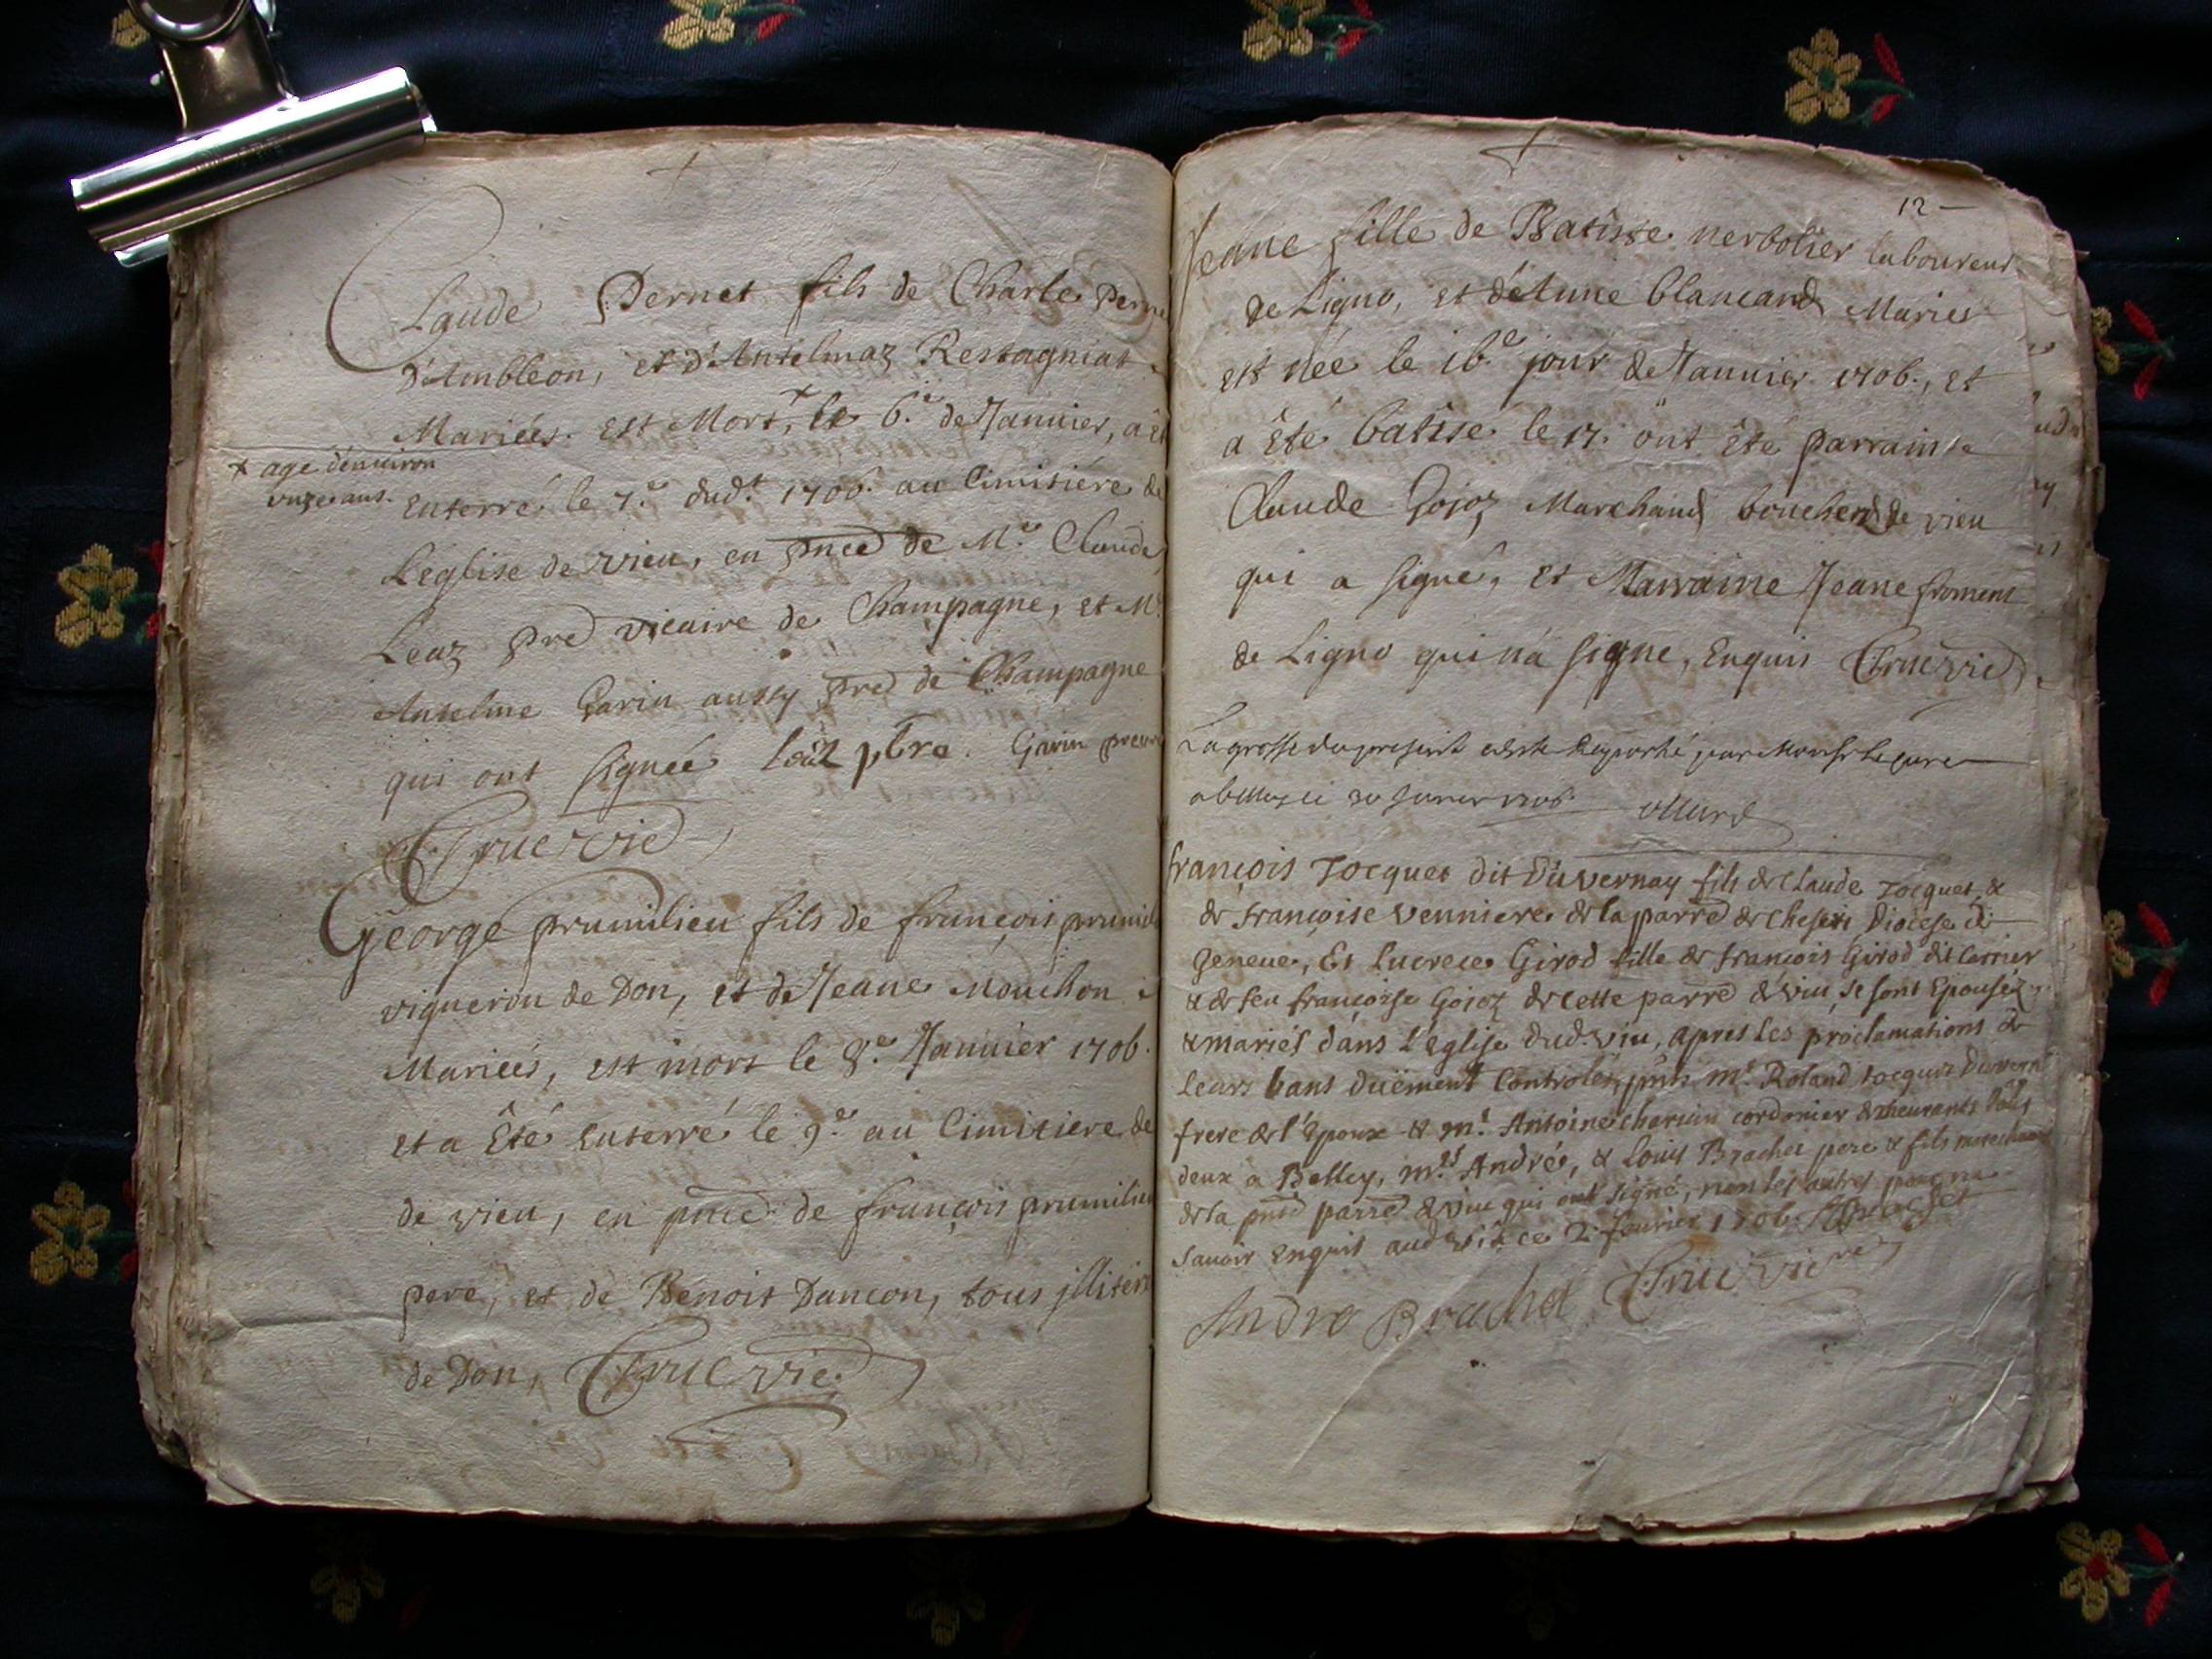 Claude Pernet fils de Charle Perne
d'Ambleon, et d'Antelmaz Restagniat
Mariées. est Mort, + le 6.e de Januier, a ét
+ age d'enuiron
onze ans.
enterré le 7.e dud.t 1706. au Cimitiére de
L'église de vieu, en pnce de M.e Claude
Leaz pre vicaire de Champagne, et M.
Antelme Garin aussy pre de Champagne
qui ont signée Leaz pbre. Garin
Truevie
George prumilieu fils de françois prumil
vigneron de Don, et de Jeane Mouchon
Mariées, est mort le 8.e Januier 1706.
et a Été enterré le 9.e au Cimitiere de
de vieu, en pnce de françois prumilieu
pere, et de Benoit Dancon, tous jllitér
de Don, Truevie.
12
Jeane fille de Batiste nerbolier laboureur
de Ligno, et d'éAnne blancand Maries
est née le 16.e jour de Januier. 1706., et
a Été batisé le 17. ont Été parrain
Claude Gojoz Marchand boucher de vieu
qui a signé, et Marraine Jeane froment
de Ligno qui n'a signé, Enquis Truevie
La grosse du present a esté Raporté par Monsr le curé
a belley ce 30 Janvier 1706
françois Tocquet dit Duvernay fils de Claude Tocquet, &
de françoise venniere de la parre de Cheseri Diocese de
Geneue, Et Lucrece Girod fille de françois Girod dit Carrier
& de feu françoise Gojoz de cette parre de viu, se sont Epouséz
& mariés dans l'église dud. viu, apres les proclamations de
leurs bans duëment Controlés, pnts m.e Roland tocquet Duverna
frere de l'Epoux & m.e Antoine cordonier demeurants tous
deux a Belley, m.es André, & Louis Brachet pere & fils marchand
de la pnte parre de viu qui ont signé, non les autres pour ne
sauoir enquis aud viu ce 2. feurier 1706. Brachet
Andre Brachet Truevie